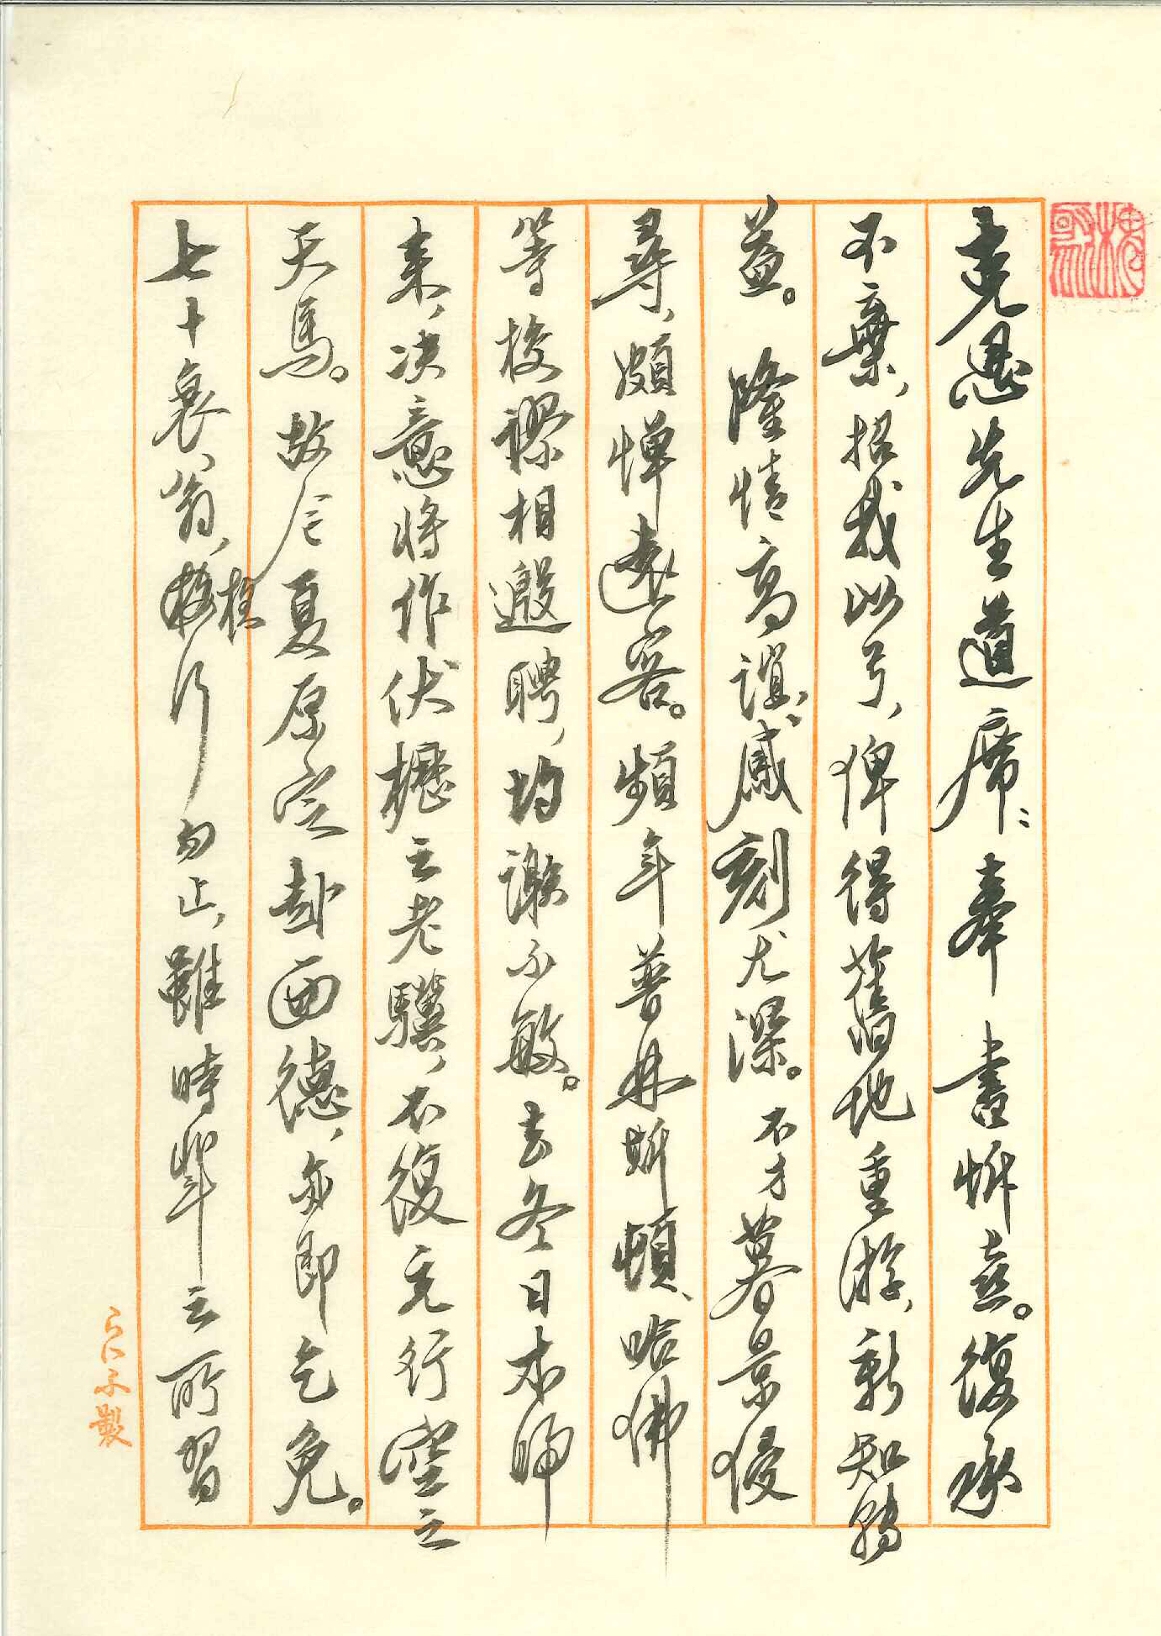 槐聚
克恩先生道席：奉　書忻喜。復承
不棄，招我以弓，俾得舊地重游，新知
益。隆情高誼，感刻尤深。不才暮景侵
尋，頗憚遠客。頻年普林斯頓、哈佛
等校謬相遐聘，均謝不敏。去冬日本歸
來，决意將作伏櫪之老驥，不復充行空之
天馬。故今夏原定赴西德，亦即乞免。
七十衰翁，行勿止，雖時輩之所習
製